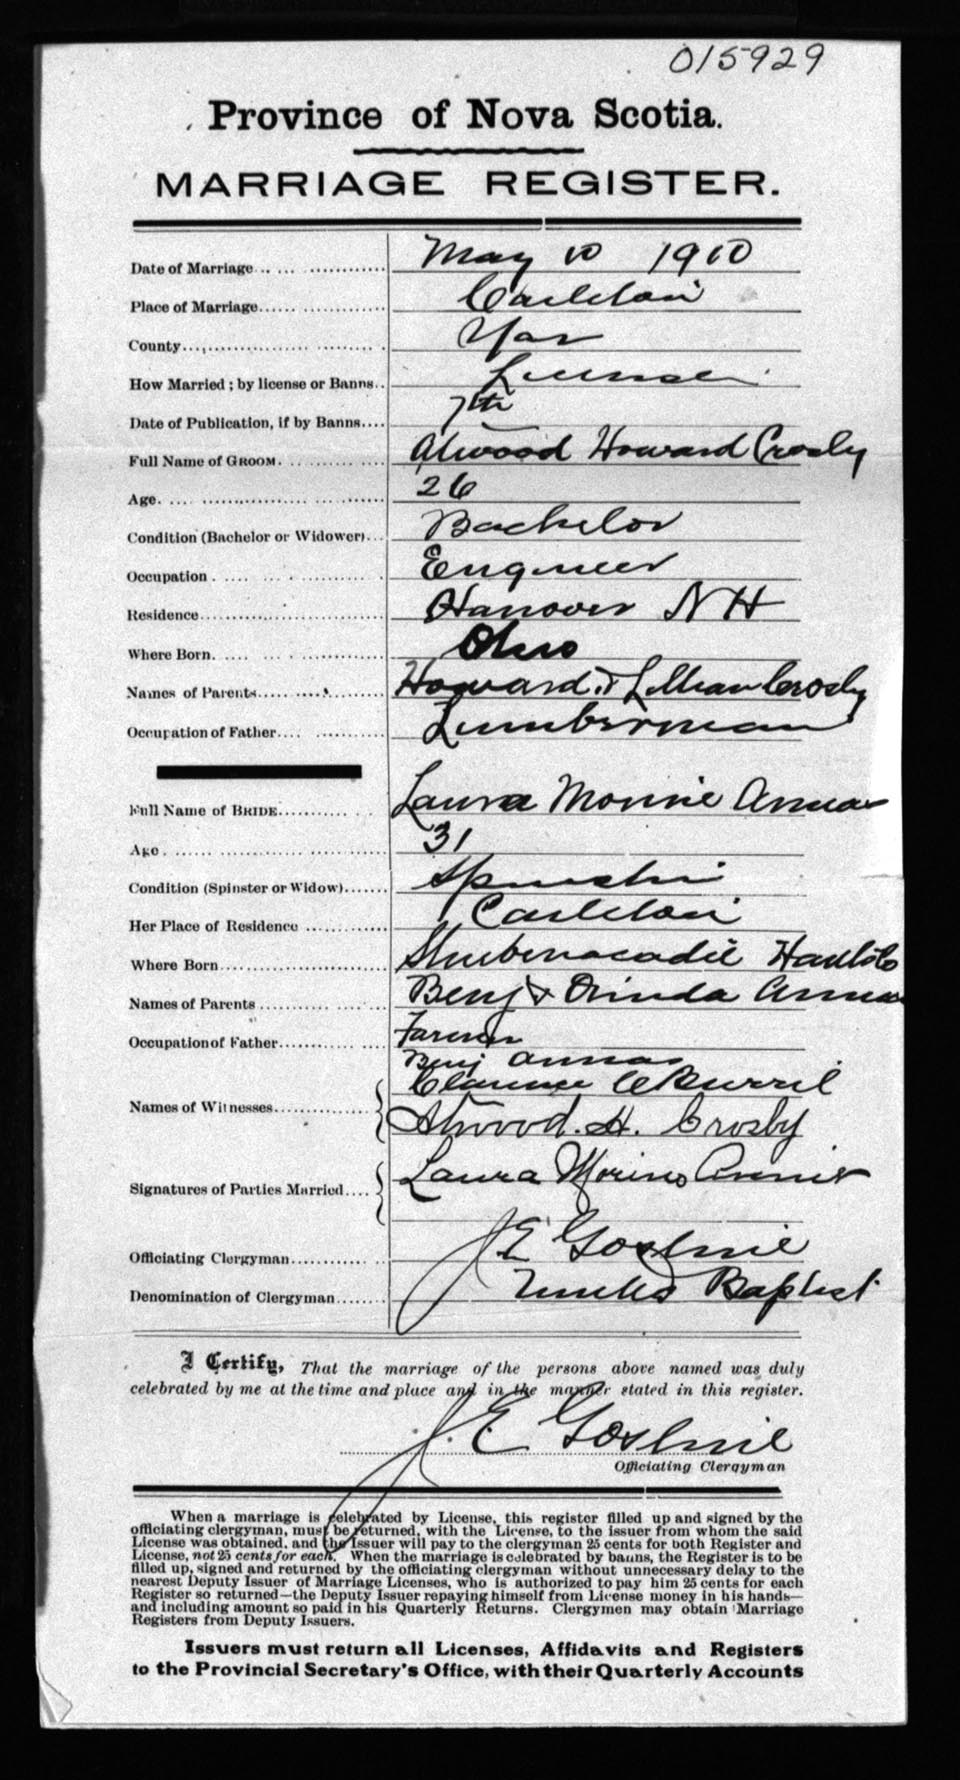 015929
Province of Nova Scotia.
MARRIAGE REGISTER.
Date of Marriage May 10 1910
Place of Marriage Carleton
County Yar
How Married; by license or Banns License
Date of Publication, if by Banns 7th
Full Name of GROOM. Atwood Howard Crosby
Age. 26
Condition (Bachelor or Widower) Bachelor
Occupation Engineer
Residence Hanover NH
Where Born. Ohio
Names of Parents Howard & Lillian Crosby
Occupation of Father Lumberman
Full Name of BRIDE Laura Annas
Age 31
Condition (Spinster or Widow) Spinster
Her Place of Residence Carleton
Where Born Shubenacadie Hants Co
Names of Parents Benj & Orinda Annas
Occupation of Father Farmer
Benj Annas
Names of Witnesses Clarence Burril
Atwood. H. Crosby
Signatures of Parties Married Laura Annis
Officiating Clergyman J E Goslinie
Denomination of Clergyman United Baptist
I Certify, That the marriage of the persons above named was duly
celebrated by me at the time and place and in the manner stated in this register.
J. E. Goslinie
Officiating Clergyman
When a marriage is celebrated by License, this register filled up and signed by the
officiating clergyman, must be returned, with the License, to the issuer from whom the said
License was obtained, and the Issuer will pay to the clergyman 25 cents for both Register and
License, not 25 cents for each. When the marriage is celebrated by banns, the Register is to be
filled up, signed and returned by the officiating clergyman without unnecessary delay to the
nearest Deputy Issuer of Marriage Licenses, who is authorized to pay him 25 cents for each
Register so returned—the Deputy Issuer repaying himself from License money in his hands—
and including amount so paid in his Quarterly Returns. Clergymen may obtain Marriage
Registers from Deputy Issuers.
Issuers must return all Licenses, Affidavits and Registers
to the Provincial Secretary's Office, with their Quarterly Accounts